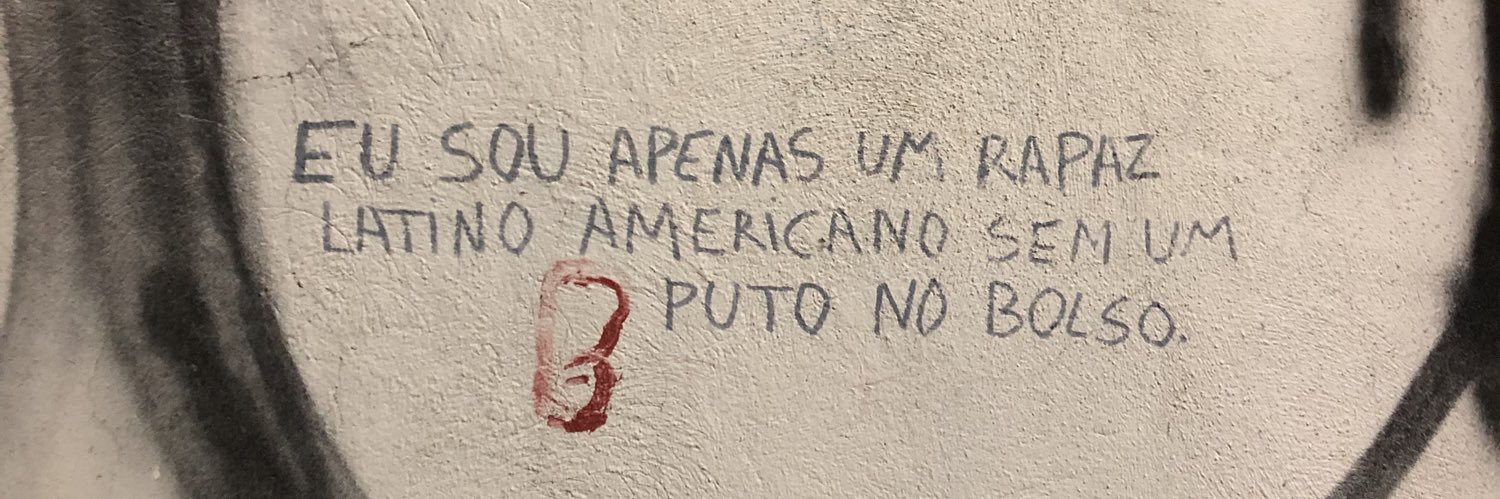 EU SOU APENAS UM RAPAZ
LATINO AMERICANO SEM UM
PUTO NO BOLSO.